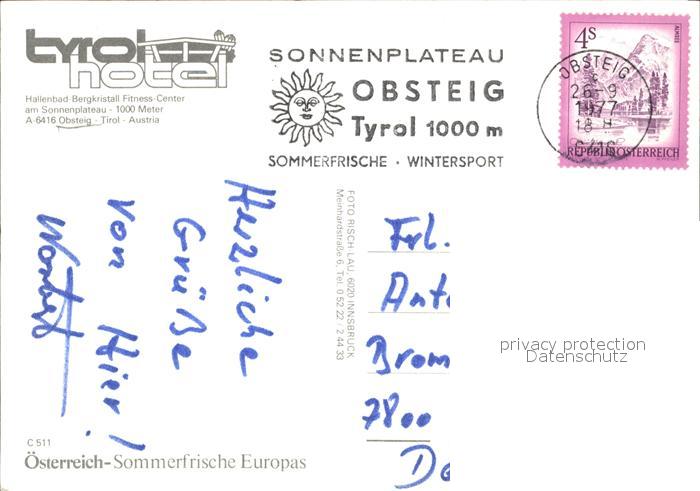 tyrol
hotel
Hallenbad-Bergkristall Fitness-Center
am Sonnenplateau - 1000 Meter
A-6416 Obsteig - Tirol - Austria
SONNENPLATEAU
OBSTEIG
Tyrol 1000 m
SOMMERFRISCHE · WINTERSPORT
4S
ALMSEE
REPUBLIK ÖSTERREICH
OBSTEIG
26.-9
1977
18 H
6416
Herzliche
Grüße
von Hier!
FOTO RISCH LAU, 6020 INNSBRUCK
Meinhardstraße 6, Tel. 0 52 22 / 2 44 33
Frl.
Ant
Brom
7800
privacy protection
Datenschutz
C 511
Österreich-Sommerfrische Europas